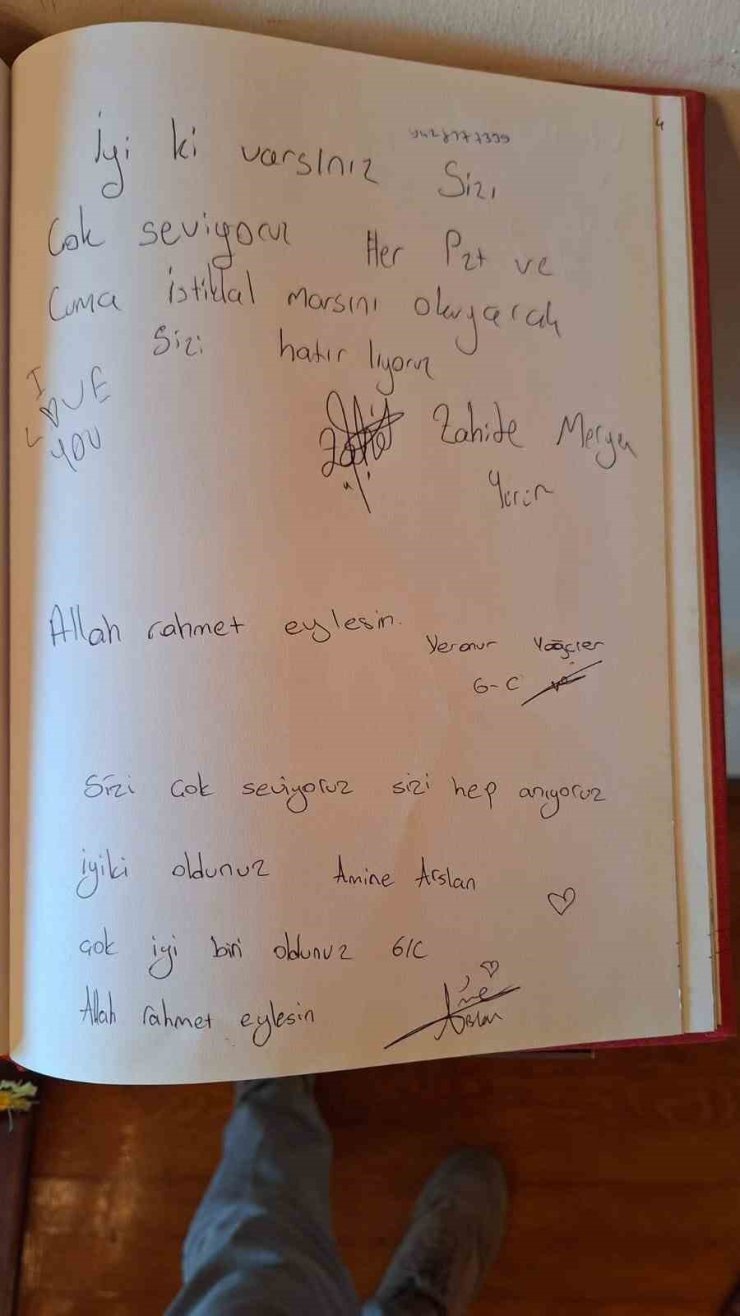 4
İyi ki varsınız Sizi
Çok seviyoruz Her Pzt ve
Cuma istiklal marsını okuyarak
Sizi hatırlıyoruz
I
LOVE
YOU
Zahide Meryem
Allah rahmet eylesin.
6-C
Sizi çok seviyoruz sizi hep anıyoruz
iyiki oldunuz Amine Arslan
çok iyi biri oldunuz 6/C
Allah rahmet eylesin
Arslan